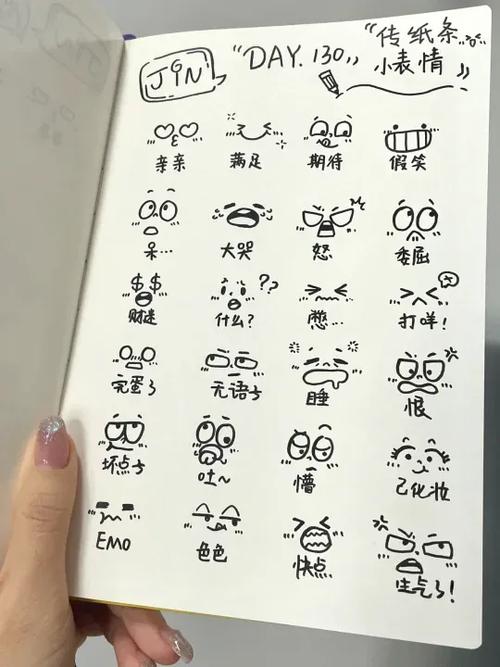 JIN "DAY.130,, "传纸条
小表情 〃
亲亲 满足 期待 假笑
呆… 大哭 怒 委屈
财迷 什么? 憋… 打咩!
完蛋了 无语ち 睡 恨
坏点ち 吐~ 懵 已化妆
EMO 色色 快点 生气了!